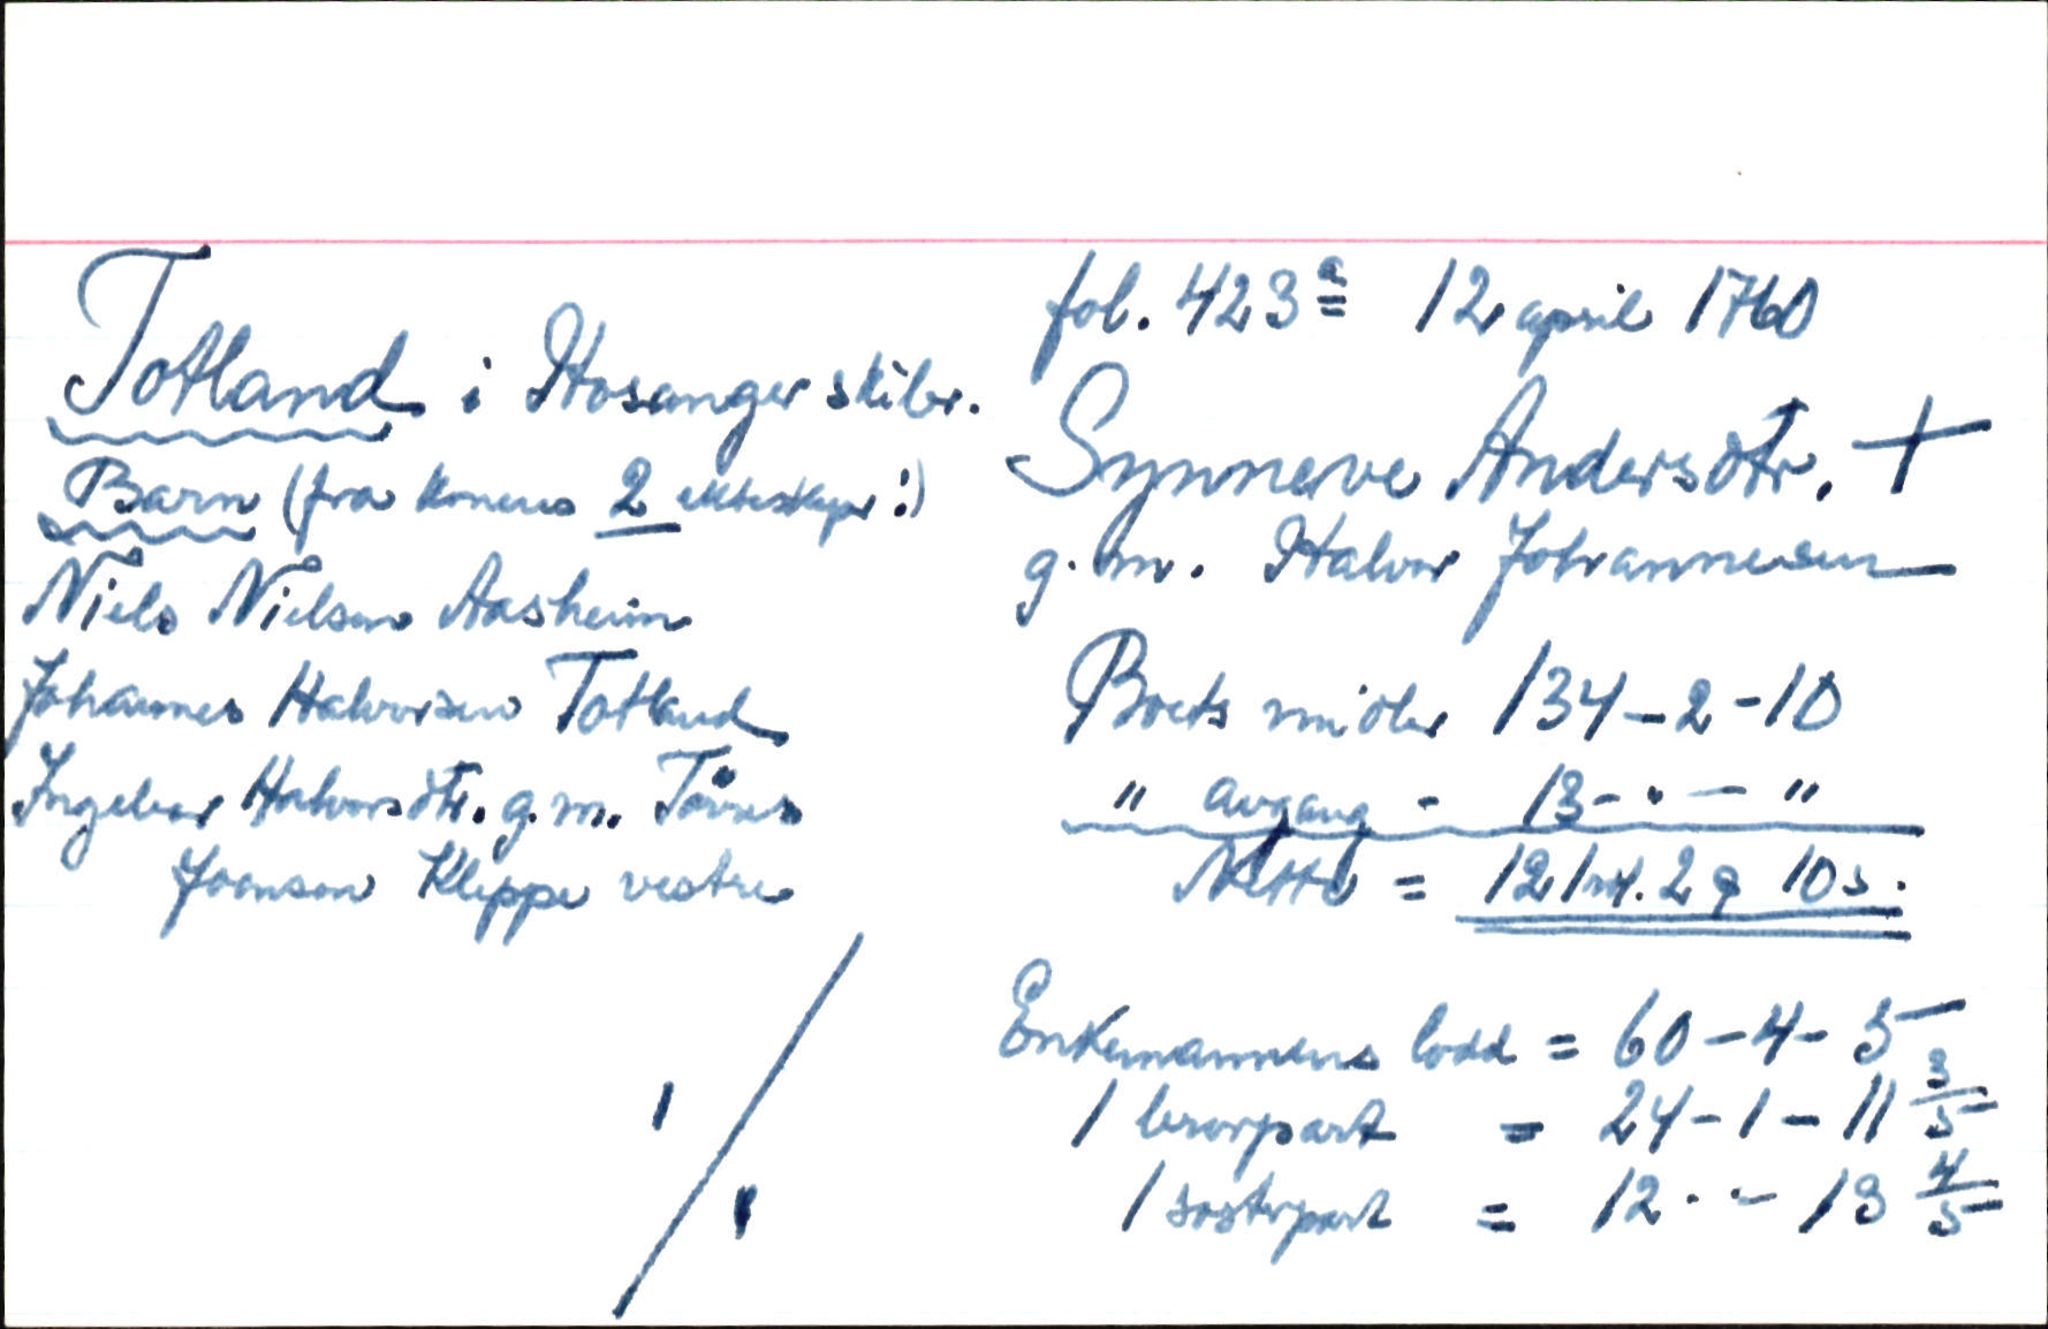 fol. 423a 12 april 1760
Totland i Hosanger skibr.
Synneve Andersdtr. +
Barn (fra konens 2 ekteskaper:)
g. m. Halvor Johannesen
Niels Nielsen Aasheim
Johannes Halvorsen Totland
Ingebor Halvorsdtr. g. m.
Joensen Kleppe vestre
Boets midler 134 - 2 - 10
" avgang - 13 - " - "
Netto = 121 rd. 2 q 10 s.
Enkemannens lodd = 60 - 4 - 5
1 brorpart = 24 - 1 - 11 3/5
1 søsterpart = 12 - " - 13 4/5